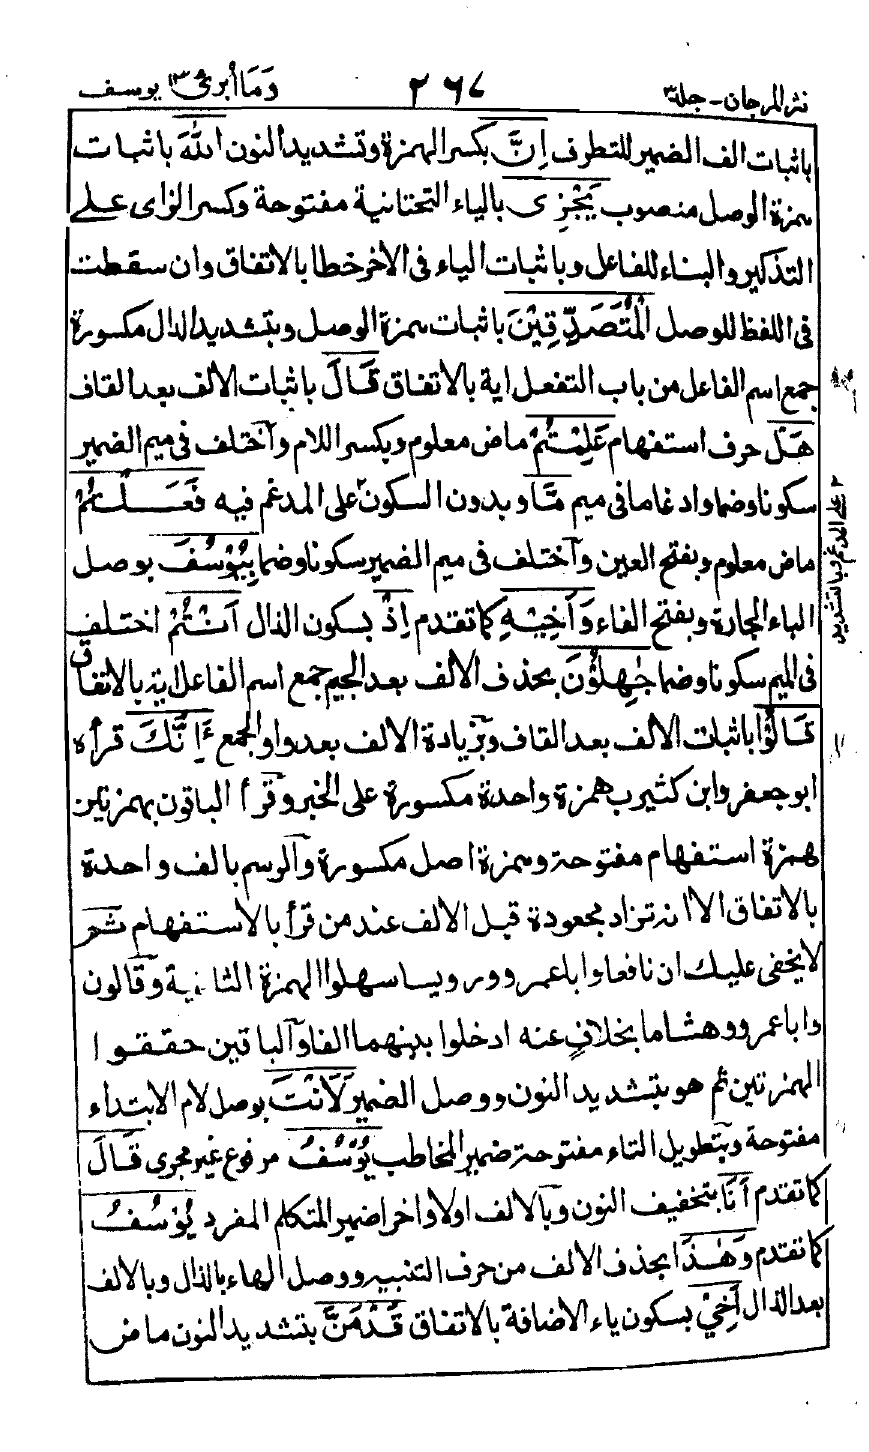 نثر المرجان - جلد ٣ ٢٦٧ وَمَا أبرئ ١٣ يوسف
باثبات الف الضمير للتطرف إِنَّ بكسر الهمزة وتشديد النون اللهَ باثبات
همزة الوصل منصوب يَجْزِى بالياء التحتانية مفتوحة وكسر الزاى على
التذكير والبناء للفاعل وباثبات الياء فى الآخر خطا بالاتفاق وان سقطت
فى اللفظ للوصل الْمُتَصَدِّقِيْنَ باثبات همزة الوصل وبتشديد الدال مكسورة
جمع اسم الفاعل من باب التفعل اية بالاتفاق قَالَ باثبات الالف بعد القاف
هَلْ حرف استفهام عَلِمْتُمْ ماض معلوم وبكسر اللام واختلف فى ميم الضمير
سكونا وضما وادغاما فى ميم مَّا وبدون السكون ٢ على المدغم فيه فَعَلْتُمْ
ماض معلوم وبفتح العين واختلف فى ميم الضمير سكونا وضما بِيُوْسُفَ بوصل
الباء الجارة وبفتح الفاء وَأَخِيْهِ كما تقدم إِذْ بسكون الذال أَنْتُمْ اختلف
فى الميم سكونا وضما جٰهِلُوْنَ بحذف الالف بعد الجيم جمع اسم الفاعل اية بالاتفاق
قَالُوْا باثبات الالف بعد القاف وبزيادة الالف بعد واو الجمع ءَاِنَّكَ قرأه
ابو جعفر وابن كثير بهمزة واحدة مكسورة على الخبر وقرأ الباقون بهمزتين
همزة استفهام مفتوحة وهمزة اصل مكسورة والرسم بالف واحدة
بالاتفاق الا انه تزاد مجعودة قبل الالف عند من قرأ بالاستفهام ثم
لا يخفى عليك ان نافعا وابا عمرو وويسا سهلوا الهمزة الثانية وقالون
وابا عمرو وهشاما بخلاف عنه ادخلوا بينهما الفا والباقين حققوا
الهمزتين ثم هو بتشديد النون ووصل الضمير لَأَنْتَ بوصل لام الابتداء
مفتوحة وبتطويل التاء مفتوحة ضمير المخاطب يُوْسُفُ مرفوع غير مجرى قَالَ
كما تقدم أَنَا بتخفيف النون وبالالف اولا واخرا ضمير المتكلم المفرد يُوْسُفُ
كما تقدم وَهٰذَا بحذف الالف من حرف التنبيه ووصل الهاء بالذال وبالالف
بعد الذال أَخِيْ بسكون ياء الاضافة بالاتفاق قَدْ مَنَّ بتشديد النون ماض
٢ على المدغم وبالتشديد